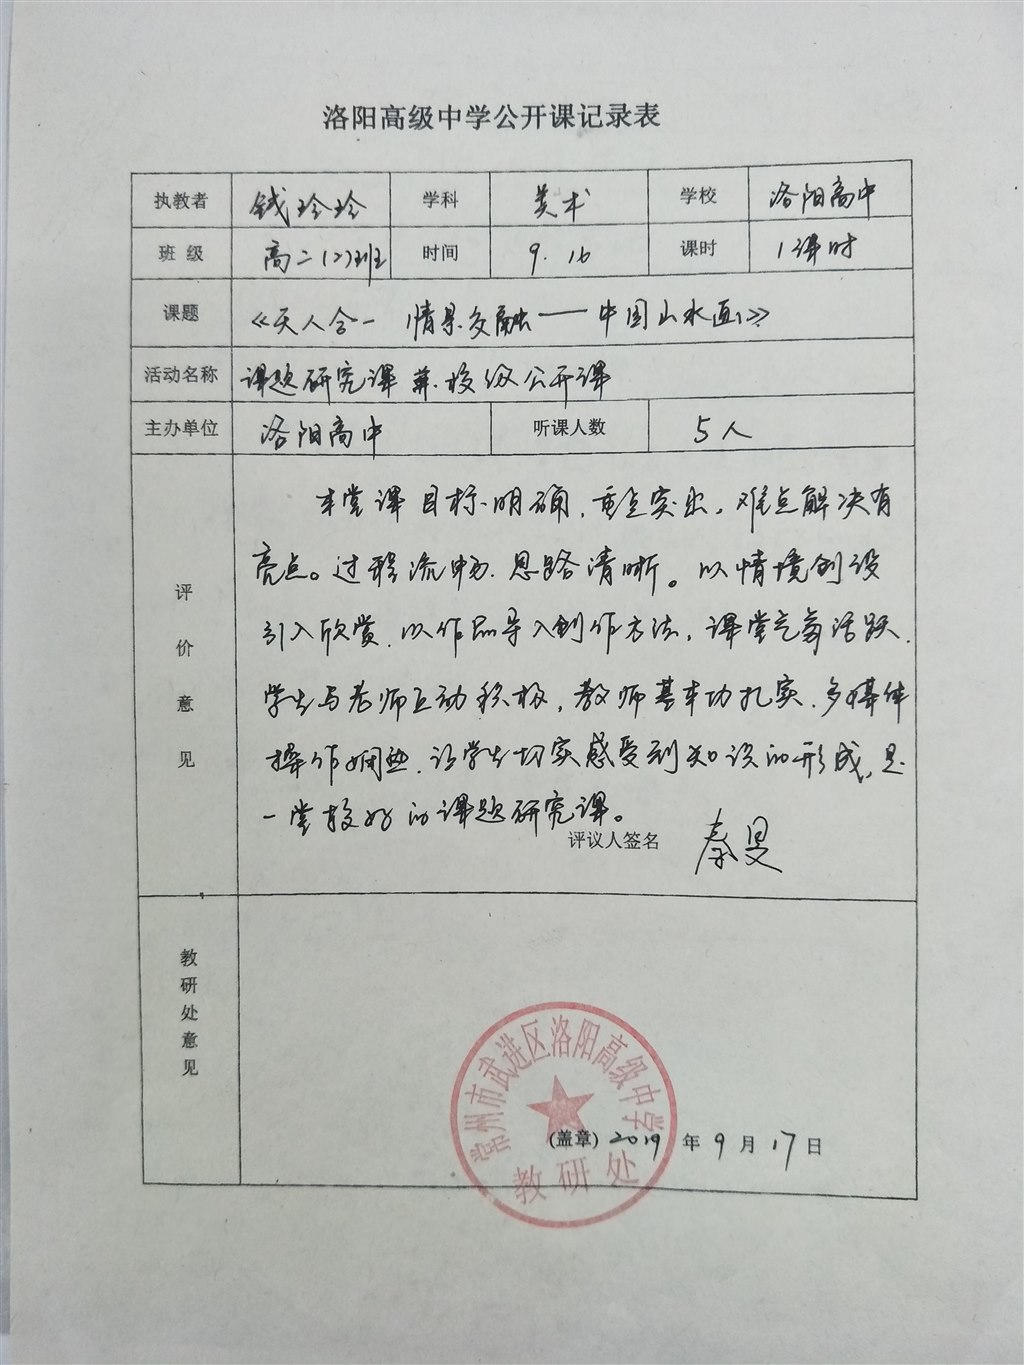 洛阳高级中学公开课记录表
执教者 钱玲玲 学科 美术 学校 洛阳高中
班级 高二(2)班 时间 9.16 课时 1课时
课题 《天人合一 情景交融——中国山水画》
活动名称 课题研究课兼校级公开课
主办单位 洛阳高中 听课人数 5人
评价意见
本堂课目标明确,重点突出,难点解决有
亮点。过程流畅.思路清晰。以情境创设
引入欣赏.以作品导入创作方法,课堂气氛活跃.
学生与老师互动积极,教师基本功扎实.多媒体
操作娴熟.让学生切实感受到知识的形成,是
一堂较好的课题研究课。
评议人签名 秦旻
教研处意见
常州市武进区洛阳高级中学
(盖章) 2019年9月17日
教研处